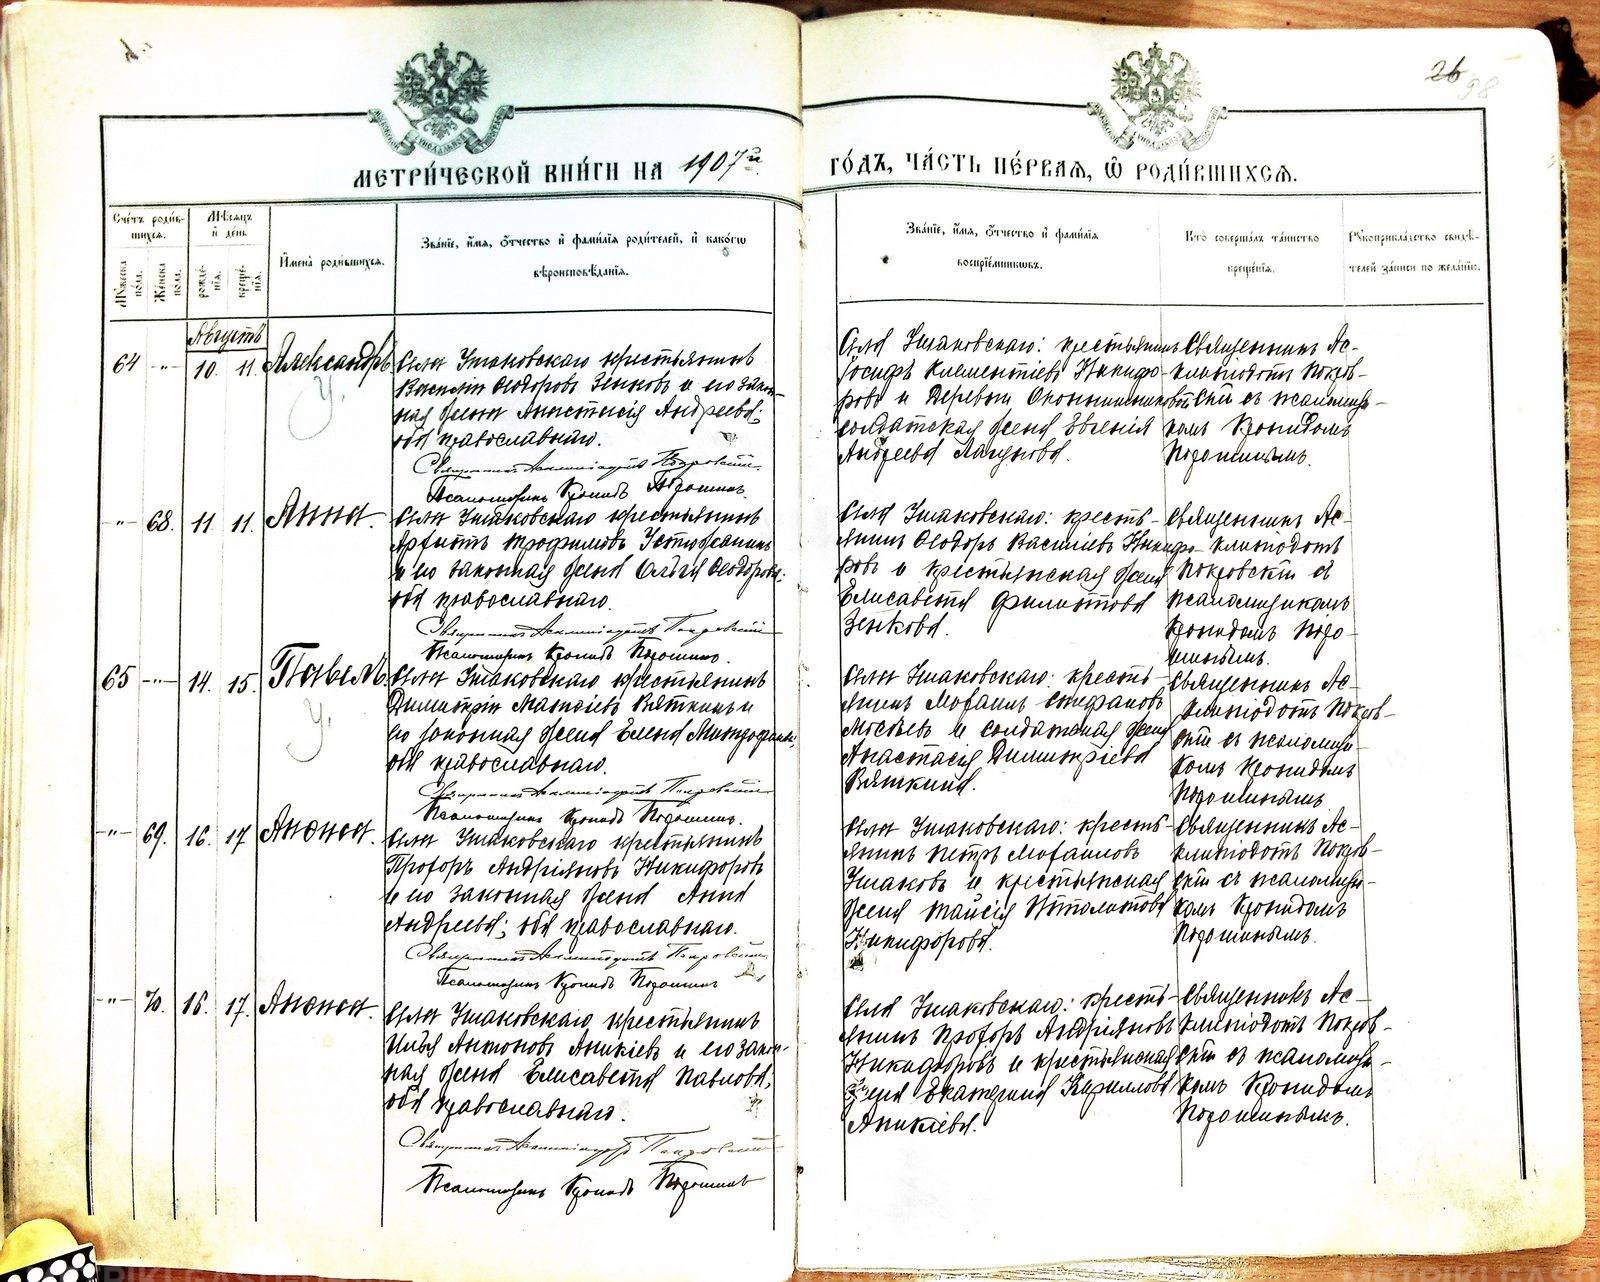 26
98
МЕТРИ́ЧЕСКОЙ КНИ́ГИ НА 1907й
ГО́ДЪ, ЧА́СТЬ ПЕ́РВАЯ, Ѡ҆ РОДИ́ВШИХСЯ.
Сче́тъ роди́в-
шихся.
Мꙋ́жеска по́ла.
Же́нска по́ла.
Мѣ́сяцъ
и҆ де́нь
рожде́нїя.
креще́нїя.
И҆мена̀ роди́вшихся.
Зва́нїе, и҆́мя, ѻ҆́тчество и҆ фами́лїя роди́телей, и҆ како́гѡ
вѣроисповѣ́данїя.
Зва́нїе, и҆́мя, ѻ҆́тчество и҆ фами́лїя
воспрїе́мникѡвъ.
Кто̀ соверша́лъ та́инство
креще́нїя.
Рꙋкоприкла́дство свидѣ́-
телей за́писи по жела́нїю.
Августъ
64 -"- 10. 11. Александръ
У.
Села Ушаковскаго крестьянинъ
Василій Ѳеодоровъ Зенковъ и его закон-
ная жена Анастасія Андреева;
оба православнаго.
Священникъ Асклипіодотъ Покровскій.
Псаломщикъ Кронидъ Порошинъ.
Села Ушаковскаго: крестьянинъ
Іосифъ Климентіевъ Никифо-
ровъ и деревни
солдатская жена Евгенія
Андреева
Священникъ Ас-
клипіодотъ Покров-
скій съ псаломщи-
комъ Кронидомъ
Порошинымъ.
-"- 68. 11. 11. Анна.
Села Ушаковскаго крестьянинъ
Трофимовъ Устюжанинъ
и его законная жена Ольга Ѳеодорова;
оба православнаго.
Священникъ Асклипіодотъ Покровскій
Псаломщикъ Кронидъ Порошинъ.
Села Ушаковскаго: кресть-
янинъ Ѳеодоръ Василіевъ Никифо-
ровъ и крестьянская жена
Елисавета Филиппова
Зенкова.
Священникъ Ас-
клипіодотъ
Покровскій съ
псаломщикомъ
Кронидомъ Поро-
шинымъ.
65 -"- 14. 15. Павелъ.
У.
Села Ушаковскаго крестьянинъ
Димитрій Вяткинъ и
его законная жена Елена
оба православнаго.
Священникъ Асклипіодотъ Покровскій
Псаломщикъ Кронидъ Порошинъ.
Села Ушаковскаго: кресть-
янинъ Михаилъ Стефановъ
и солдатская жена
Анастасія Димитріева
Вяткина.
Священникъ Ас-
клипіодотъ Покров-
скій съ псаломщи-
комъ Кронидомъ
Порошинымъ.
-"- 69. 16. 17 Анѳиса.
Села Ушаковскаго крестьянинъ
Прохоръ Андріяновъ Никифоровъ
и его законная жена Анна
Андреева; оба православнаго.
Священникъ Асклипіодотъ Покровскій
Псаломщикъ Кронидъ Порошинъ
Села Ушаковскаго: кресть-
янинъ Петръ Михаиловъ
Ушаковъ и крестьянская
жена Таисія Ипполитова
Никифорова.
Священникъ Ас-
клипіодотъ Покров-
скій съ псаломщи-
комъ Кронидомъ
Порошинымъ.
-"- 70. 16. 17. Анѳиса.
Села Ушаковскаго крестьянинъ
Илья Антоновъ Аникіевъ и его закон-
ная жена Елисавета Павлова;
оба православнаго.
Священникъ Асклипіодотъ Покровскій
Псаломщикъ Кронидъ Порошинъ
Села Ушаковскаго: кресть-
янинъ Прохоръ Андріяновъ
Никифоровъ и крестьянская
жена Екатерина Кириллова
Аникіева.
Священникъ Ас-
клипіодотъ Покров-
скій съ псаломщи-
комъ Кронидомъ
Порошинымъ.